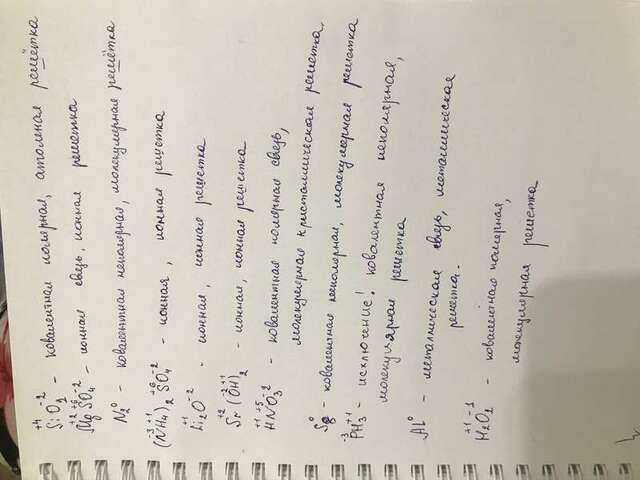 +4 -2
SiO2 - ковалентная полярная, атомная решётка
+2 +6 -2
MgSO4 - ионная связь, ионная решетка
N2⁰ - ковалентная неполярная, молекулярная решётка
-3 +1 +6 -2
(NH4)2 SO4 - ионная, ионная решетка
+1
Li2O-2 - ионная, ионная решетка
+2 -2 +1
Sr(OH)2 - ионная, ионная решетка
+1 +5 -2
HNO3 - ковалентная полярная связь,
молекулярная кристаллическая решетка.
S8⁰ - ковалентная неполярная, молекулярная решетка
-3 +1
PH3 - исключение! ковалентная неполярная,
молекулярная решетка
Al⁰ - металлическая связь, металлическая
решетка.
+1 -1
H2O2 - ковалентная полярная,
молекулярная решетка